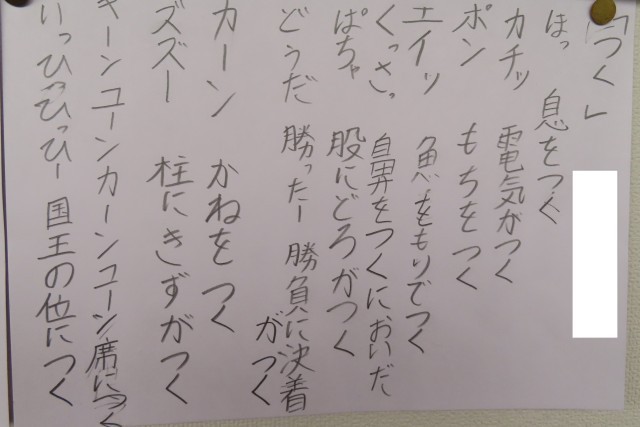 「つく」
ほっ 息をつく
カチッ 電気がつく
ポン もちをつく
エイッ 魚をもりでつく
くっさっ 鼻をつくにおいだ
ぱちゃ 股にどろがつく
どうだ 勝ったー 勝負に決着
がつく
カーン かねをつく
ズズー 柱にきずがつく
キーンコーンカーンコーン 席につく
いっひっひっひー 国王の位につく